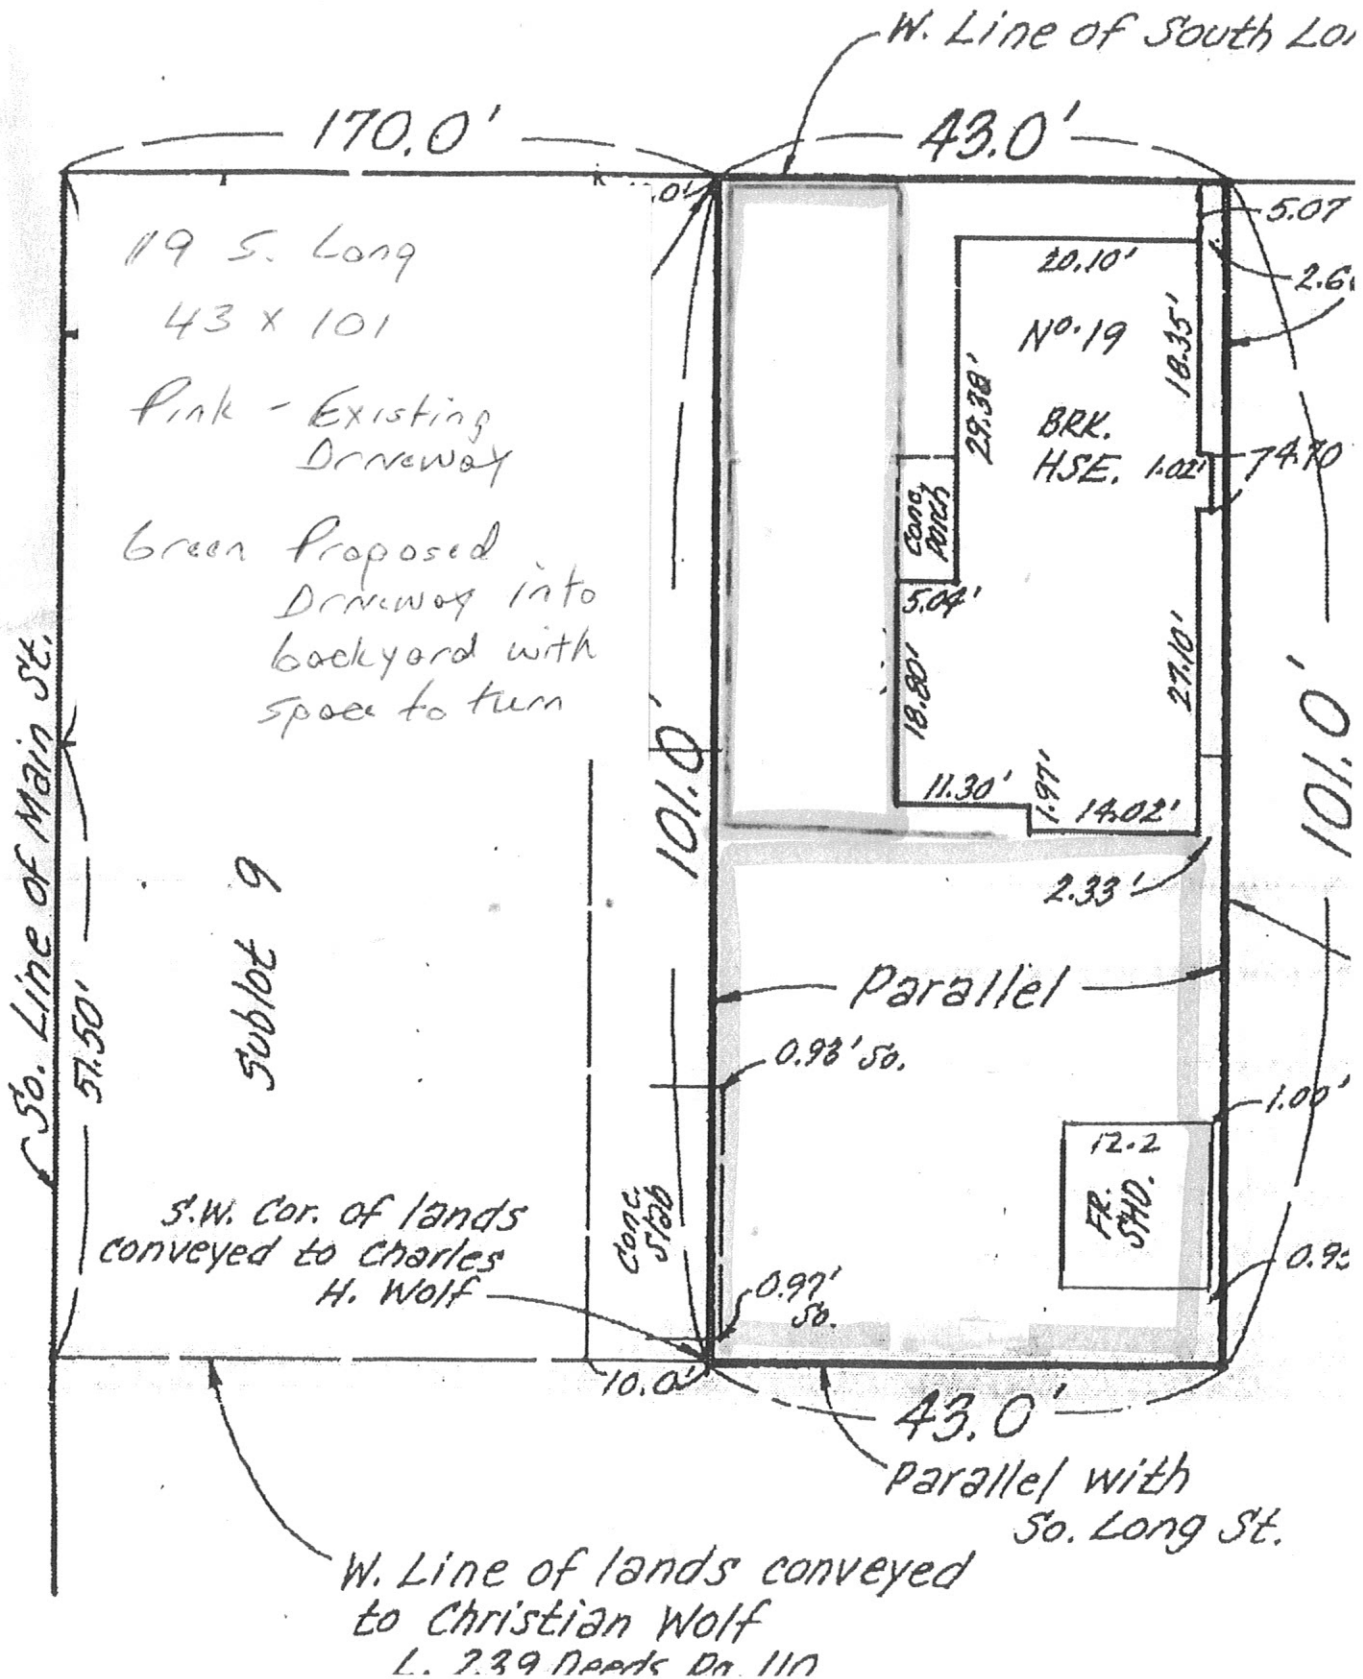 W. Line of South Lo
170.0'
43.0'
.0'
5.07
2.6
19 S. Long
43 X 101
Pink - Existing
Driveway
Green Proposed
Driveway into
backyard with
space to turn
20.10'
No. 19
18.35'
29.38'
BRK.
HSE.
1.02'
74.70
Conc.
Porch
5.04'
18.80'
27.10'
11.30'
1.97'
14.02'
2.33'
101.0'
101.0'
So. Line of Main St.
57.50'
Sublot 9
Parallel
0.93' So.
1.00'
12.2
FR.
SHD.
Conc.
Slab
S.W. Cor. of lands
conveyed to Charles
H. Wolf
0.97'
So.
0.9
10.0'
43.0'
Parallel with
So. Long St.
W. Line of lands conveyed
to Christian Wolf
L. 239 Deeds Pg. 110